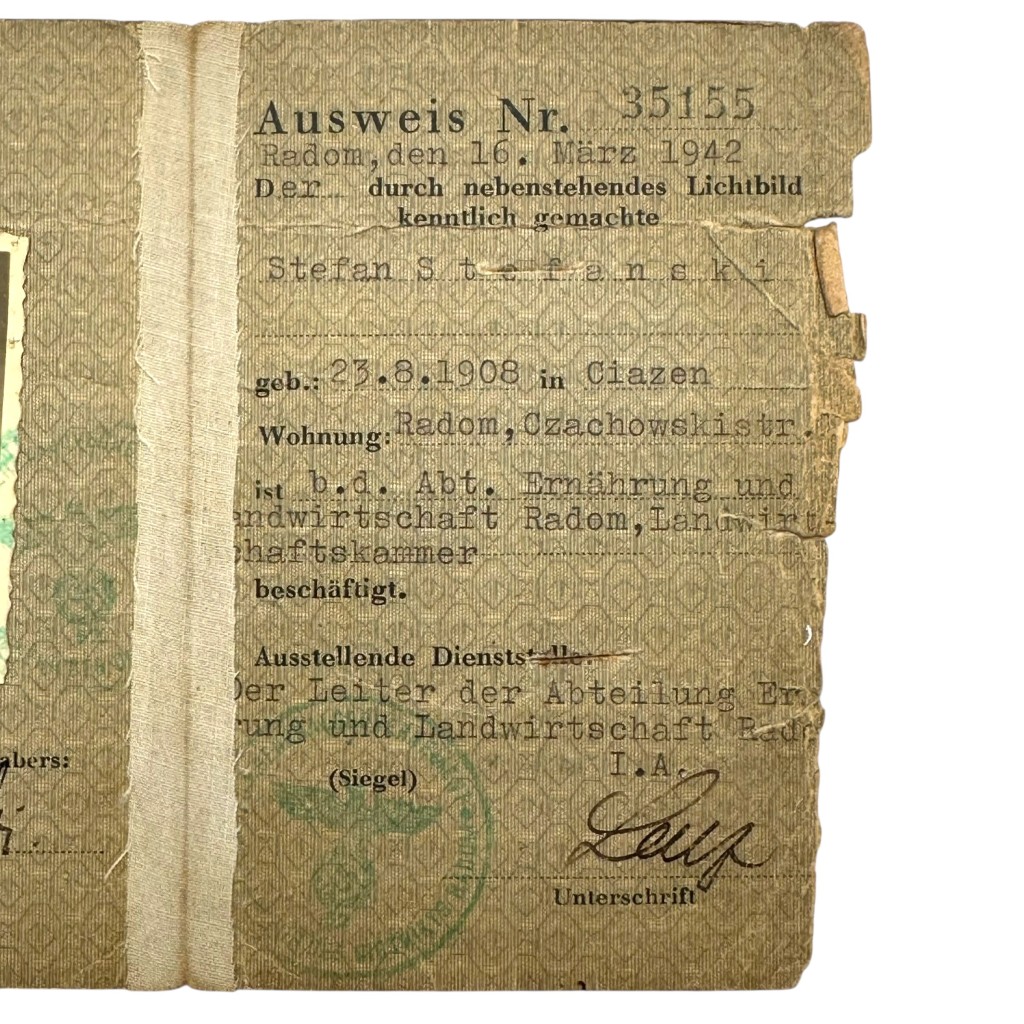 Ausweis Nr. 35155
Radom, den 16. März 1942
Der durch nebenstehendes Lichtbild
kenntlich gemachte
Stefan S t e f a n s k i
geb.: 23.8.1908 in Ciazen
Wohnung: Radom, Czachowskistr.
ist b.d. Abt. Ernährung und
andwirtschaft Radom, Landwirt-
chaftskammer
beschäftigt.
Ausstellende Dienststelle:
Der Leiter der Abteilung Er
rung und Landwirtschaft Rado
I.A.
(Siegel)
Unterschrift
abers: